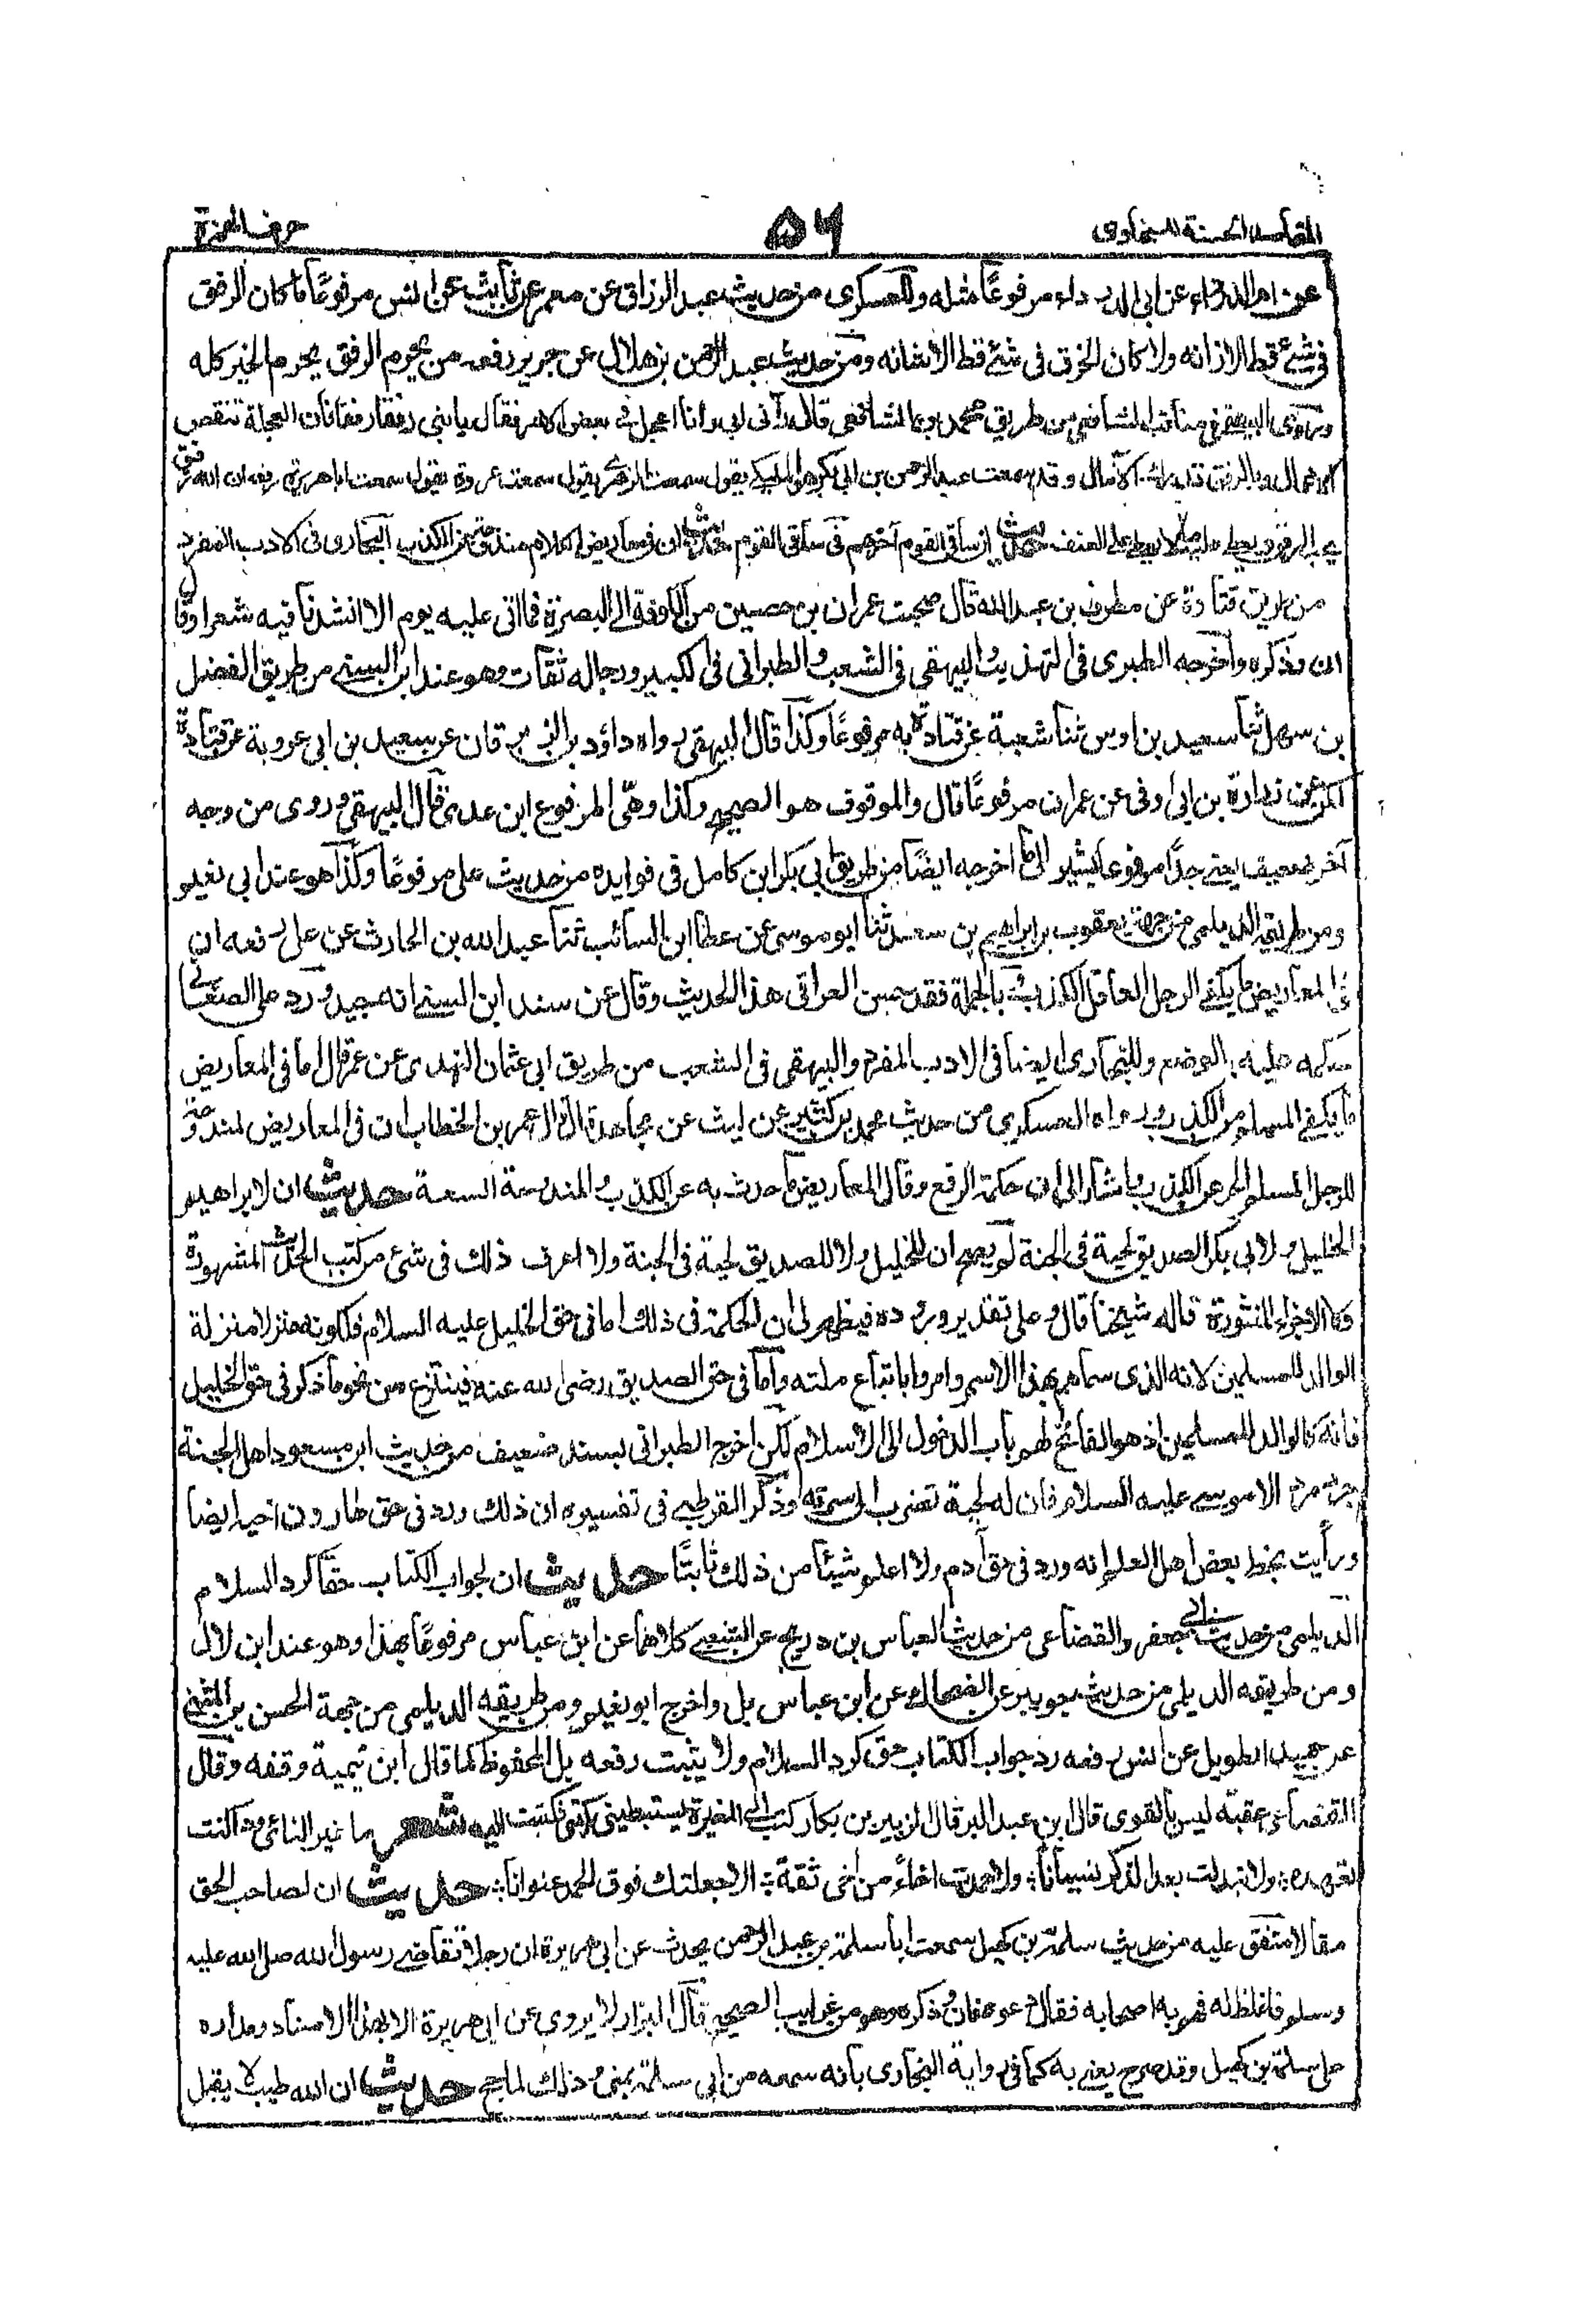 المقاصد الحسنة للسخاوى ۵۶ حرف الهمزة
عن ام الدرداء عن ابى الدرداء مرفوعًا مثله وللعسكرى من حديث عبد الرزاق عن معمر عن ثابت عن انس مرفوعًا ما كان الرفق
فى شئ قط الا زانه ولا كان الخرق فى شئ قط الا شانه ومن حديث عبد الرحمن بن هلال عن جرير رفعه من يحرم الرفق يحرم الخير كله
وروى البيهقى فى مناقب الشافعى من طريق محمد بن الشافعى قال رآنى ابى وانا اعجل فى بعض الامر فقال يا بنى رفقا رفقا فان العجلة تنقص
الاعمال وبالرفق تدرك الآمال وقد سمعت عبد الرحمن بن ابى بكر هو المليكى يقول سمعت الزهرى يقول سمعت عروة يقول سمعت ابا هريرة رفعه ان الله رفيق
يحب الرفق ويعطى عليه ما لا يعطى على العنف حديث ان ساقى القوم آخرهم فى ساقى القوم حديث ان فى معاريض الكلام مندوحة عن الكذب البخارى فى الادب المفرد
من طريق قتادة عن مطرف بن عبد الله قال صحبت عمران بن حصين من الكوفة الى البصرة فما اتى عليه يوم الا انشدنا فيه شعرا وقا
ان وذكره واخرجه الطبرى فى التهذيب والبيهقى فى الشعب والطبرانى فى الكبير ورجاله ثقات وهو عند ابن السنى من طريق الفضل
بن سهل ثنا سعيد بن اوس ثنا شعبة عن قتادة به مرفوعًا وكذا قال البيهقى رواه داؤد بن الزبرقان عن سعيد بن ابى عروبة عن قتادة
لكن عن زرارة بن ابى اوفى عن عمران مرفوعًا قال والموقوف هو الصحيح وكذا وهّى المرفوع ابن عدى قال البيهقى وروى من وجه
آخر ضعيف يعنى جدًا مرفوعا يشير الى ما اخرجه ايضًا من طريق ابى بكر ابن كامل فى فوايده من حديث على مرفوعًا وكذا هو عند ابى نعيم
ومن طريقه الديلمى من جهة يعقوب بن ابراهيم بن سعد ثنا ابو موسى عن عطا ابن السائب ثنا عبد الله بن الحارث عن على رفعه ان
فى المعاريض ما يكفى الرجل العاقل الكذب وبالجملة فقد حسن العراقى هذا الحديث وقال عن سند ابن السنى انه جيد ورد على الصغانى
حكمه عليه بالوضع وللبخارى ايضا فى الادب المفرد والبيهقى فى الشعب من طريق ابى عثمان النهدى عن عمر قال اما فى المعاريض
ما يكفى المسلم من الكذب ورواه العسكرى من حديث محمد بن كثير عن ليث عن مجاهد قال قال عمر بن الخطاب ان فى المعاريض لمندوحة
للرجل المسلم الحر عن الكذب واشار الى ان حكمه الرفع وقال المعاريض ما حدت به عن الكذب والمندوحة السعة حديث ان لابراهيم
الخليل ولابى بكر الصديق لحية فى الجنة لم يصح ان للخليل ولا للصديق لحية فى الجنة ولا اعرف ذلك فى شئ من كتب الحديث المشهورة
ولا الاجزاء المنثورة قاله شيخنا قال وعلى تقدير وروده فيظهر لى ان الحكمة فى ذلك اما فى حق الخليل عليه السلام فلكونه منزلا منزلة
الوالد للمسلمين لانه الذى سماهم بهذا الاسم وامروا باتباع ملته واما فى حق الصديق رضى الله عنه فينتزع من نحو ما ذكر فى حق الخليل
فانه كالوالد للمسلمين اذ هو الفاتح لهم باب الدخول الى الاسلام لكن اخرج الطبرانى بسند ضعيف من حديث ابن مسعود اهل الجنة
جرد مرد الا موسى عليه السلام فان له لحية تضرب الى سرته وذكر القرطبى فى تفسيره ان ذلك ورد فى حق هارون اخيه ايضا
ورأيت بخط بعض اهل العلم انه ورد فى حق آدم ولا اعلم شيئًا من ذلك ثابتًا حديث ان لجواب الكتاب حقا كرد السلام
الديلمى من حديث ابى جعفر والقضاعى من حديث العباس بن ذريح عن الشعبى كلاهما عن ابن عباس مرفوعًا بهذا وهو عند ابن لال
ومن طريقه الديلمى من حديث جويبر عن الضحاك عن ابن عباس بل واخرج ابو نعيم ومن طريقه الديلمى من جهة الحسن بن المثنى
عن حميد الطويل عن انس رفعه رد جواب الكتاب حق كرد السلام ولا يثبت رفعه بل المحفوظ كما قال ابن تيمية وقفه وقال
القضاعى عقبه ليس بالقوى قال ابن عبد البر قال الزبير بن بكار كتب الى المغيرة يستبطئ كتبى فكتبت اليه شعر ما غير النائى ودا كنت
تعهده ولا تبدلت بعد الذكر نسيانا ولا حمدت اخاء من اخى ثقة الا جعلتك فوق الحمد عنوانا حديث ان لصاحب الحق
مقالا متفق عليه من حديث سلمة بن كهيل سمعت ابا سلمة بن عبد الرحمن يحدث عن ابى هريرة ان رجلا تقاضى رسول الله صلى الله عليه
وسلم فاغلظ له فهم به اصحابه فقال دعوه فان وذكره وهو من غرايب الصحيح قال البزار لا يروى عن ابى هريرة الا بهذا الاسناد ومداره
على سلمة بن كهيل وقد صرح يعنى به كما فى رواية البخارى بانه سمعه من ابى سلمة بمنى وذلك لما حج حديث ان الله طيب لا يقبل